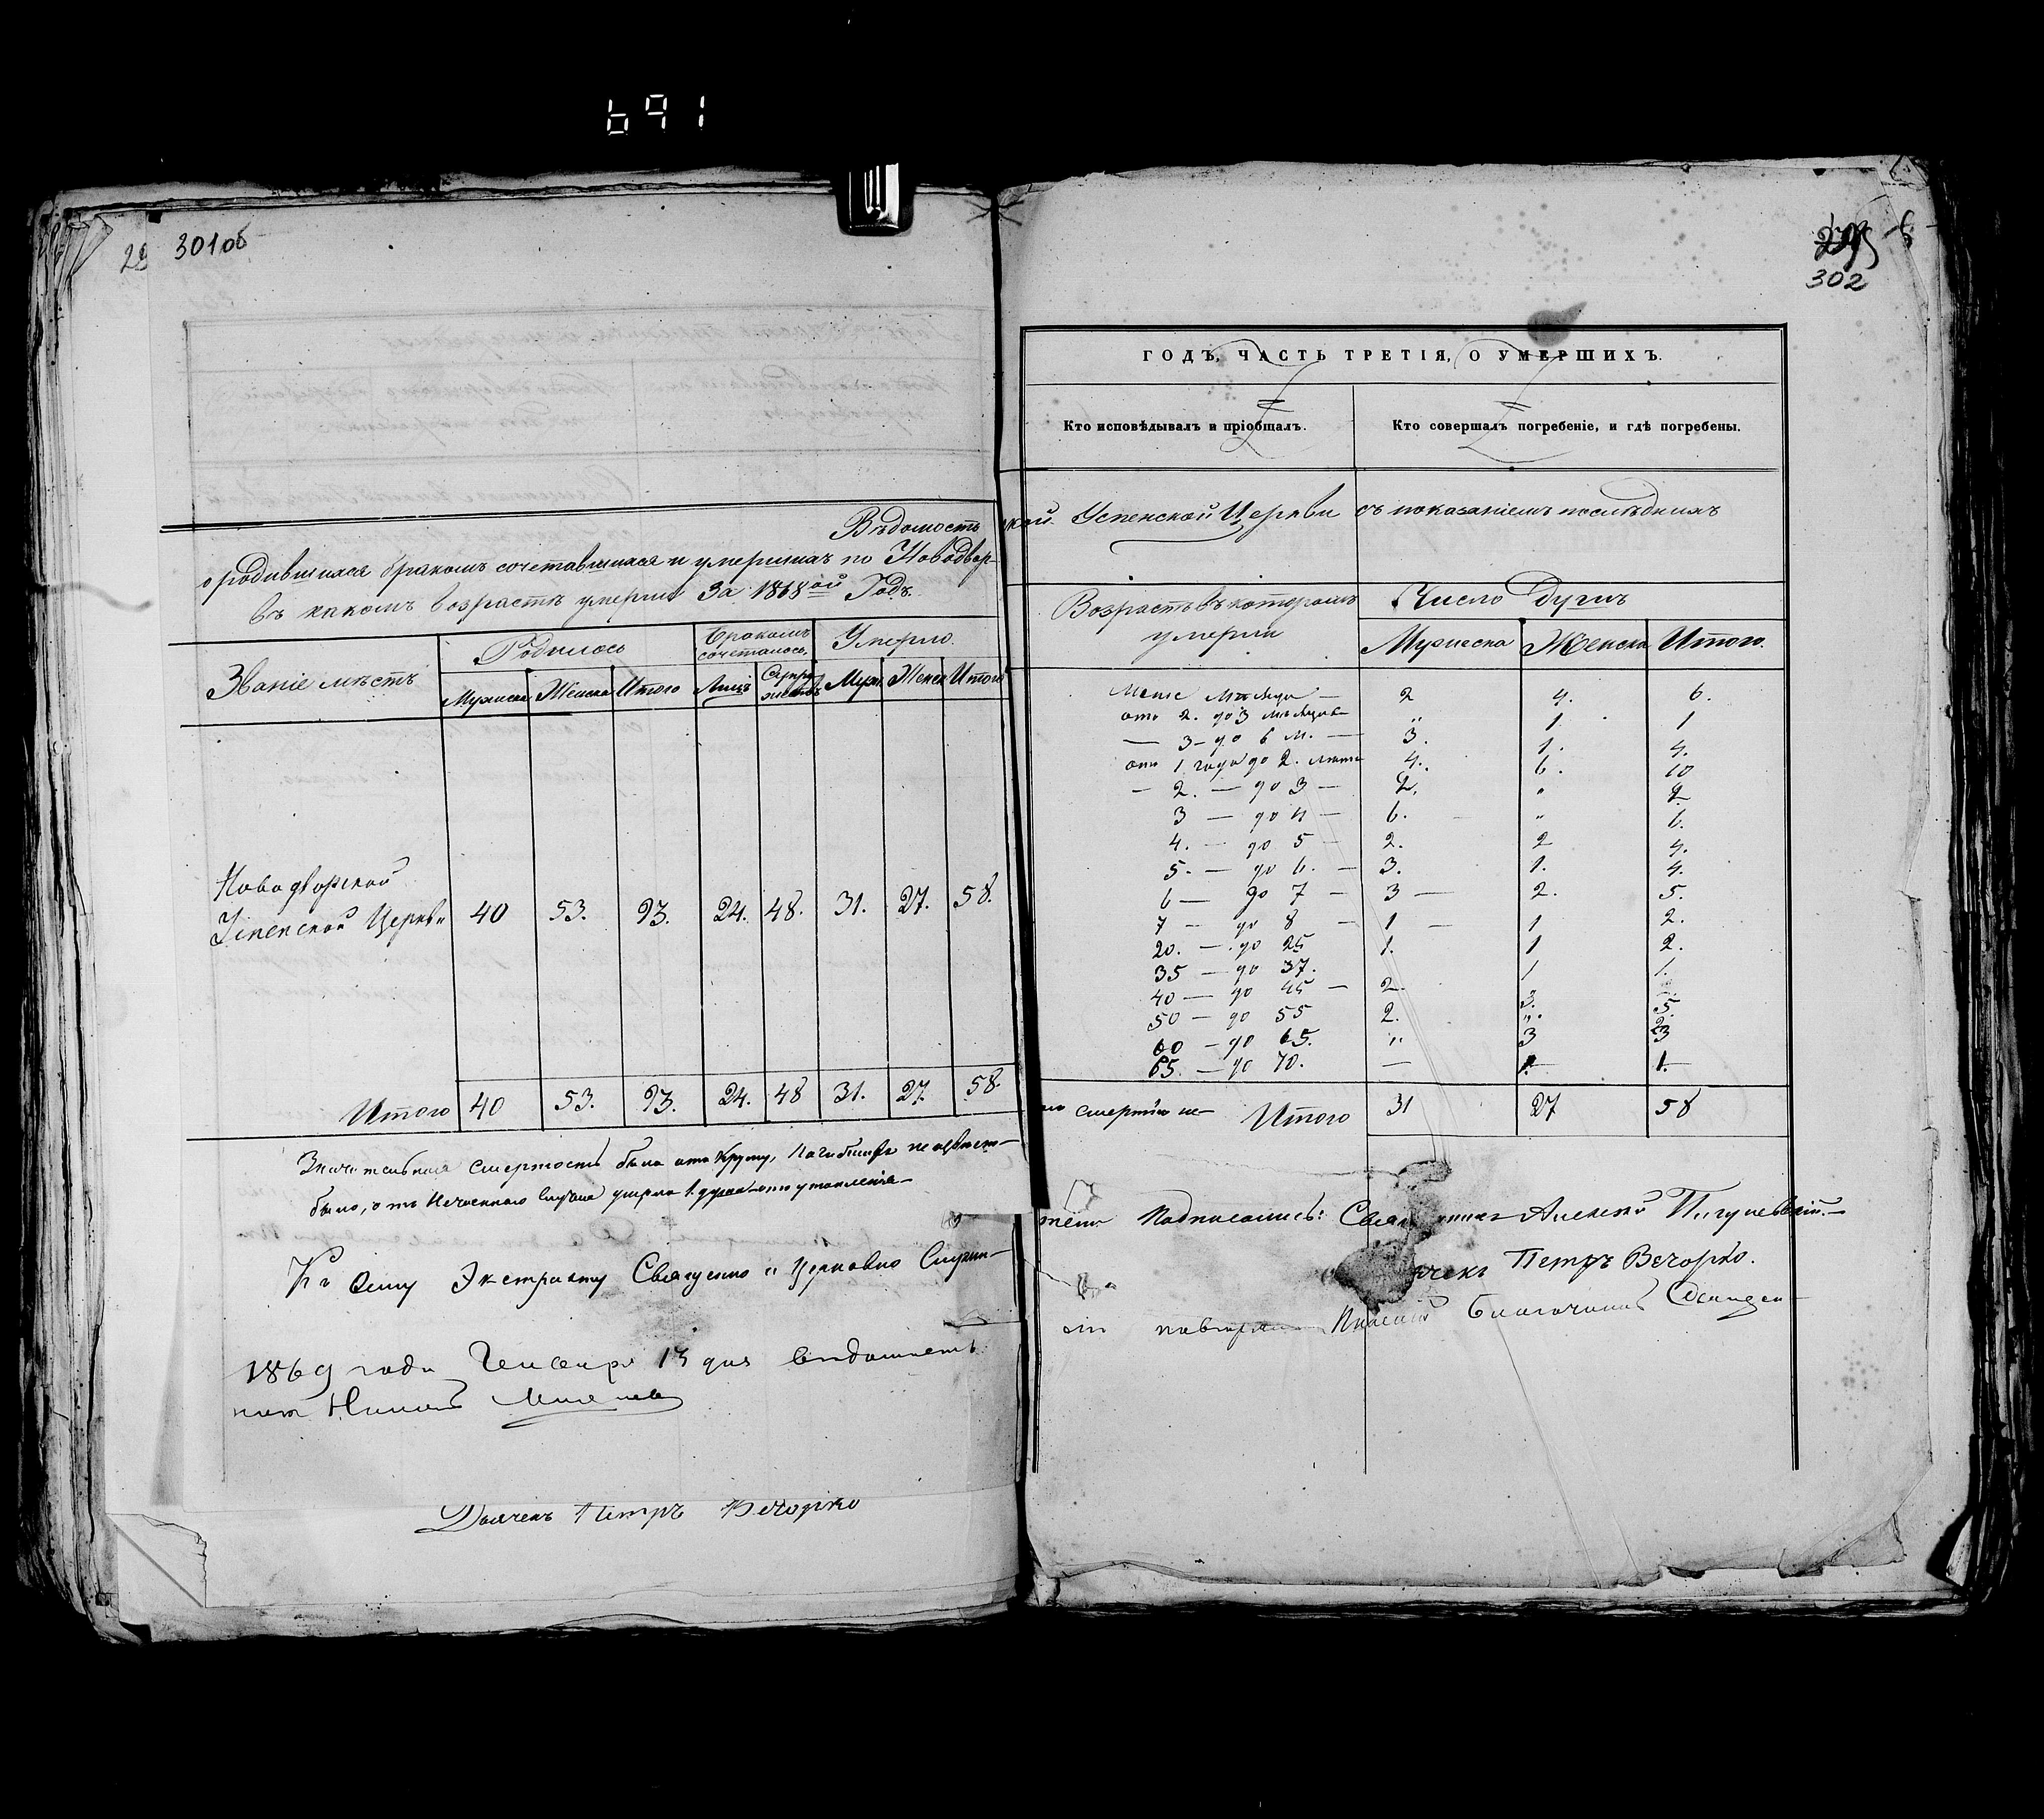 691
28 301об
302
Вѣдомость
о родившихся бракомъ сочетавшихся и умершихъ по Новодвор-
въ какомъ возрастѣ умерли За 1868ой Годъ.
Званіе мѣстъ
Родилось
Бракомъ сочеталось
Умерло
Мужеска Женска Итого Лицъ Супружествъ Муж Женск Итого
Новодворской
Успенской Церкви 40 53. 93. 24. 48. 31. 27. 58.
Итого 40 53. 93. 24. 48 31. 27. 58.
Значительная смертность была отъ Крупу,
было, отъ Нечаеннаго Случая умерла 1. душа отъ утопленія
Къ Сему Экстракту Священно и Церковно Служи-
1869 года Генваря 13 дня
Дьячекъ Петръ Вечорко
ГОДЪ, ЧАСТЬ ТРЕТІЯ, О УМЕРШИХЪ.
Кто исповѣдывалъ и пріобщалъ.
Кто совершалъ погребеніе, и гдѣ погребены.
ской Успенской Церкви съ показаніемъ послѣднихъ
Возрастъ въ которомъ умерли
Число Душъ
Мужеска Женска Итого.
Менѣ мѣсяца — 2 4. 6.
отъ 2. до 3 мѣсяцовъ " 1. 1
— 3 - до 6 м. — 3. 1. 4.
отъ 1 года до 2. лѣтъ 4. 6. 10
— 2. — до 3 — 2. " 2
3 — до 4 — 6. " 6.
4. — до 5 — 2. 2 4.
5. — до 6. — 3. 1. 4.
6 — до 7 — 3 — 2. 5.
7 — до 8 — 1 — 1 2.
20. — до 25 1. 1 2.
35 — до 37. 1 1.
40 — до 45 — 2. 3. 5.
50 — до 55 2. " 2
60 — до 65. " 3 3
65. — до 70. — 1. 1.
смертію не— Итого 31 27 58
тели Подписались: Алексей
Петръ Вечорко.
Благочинный